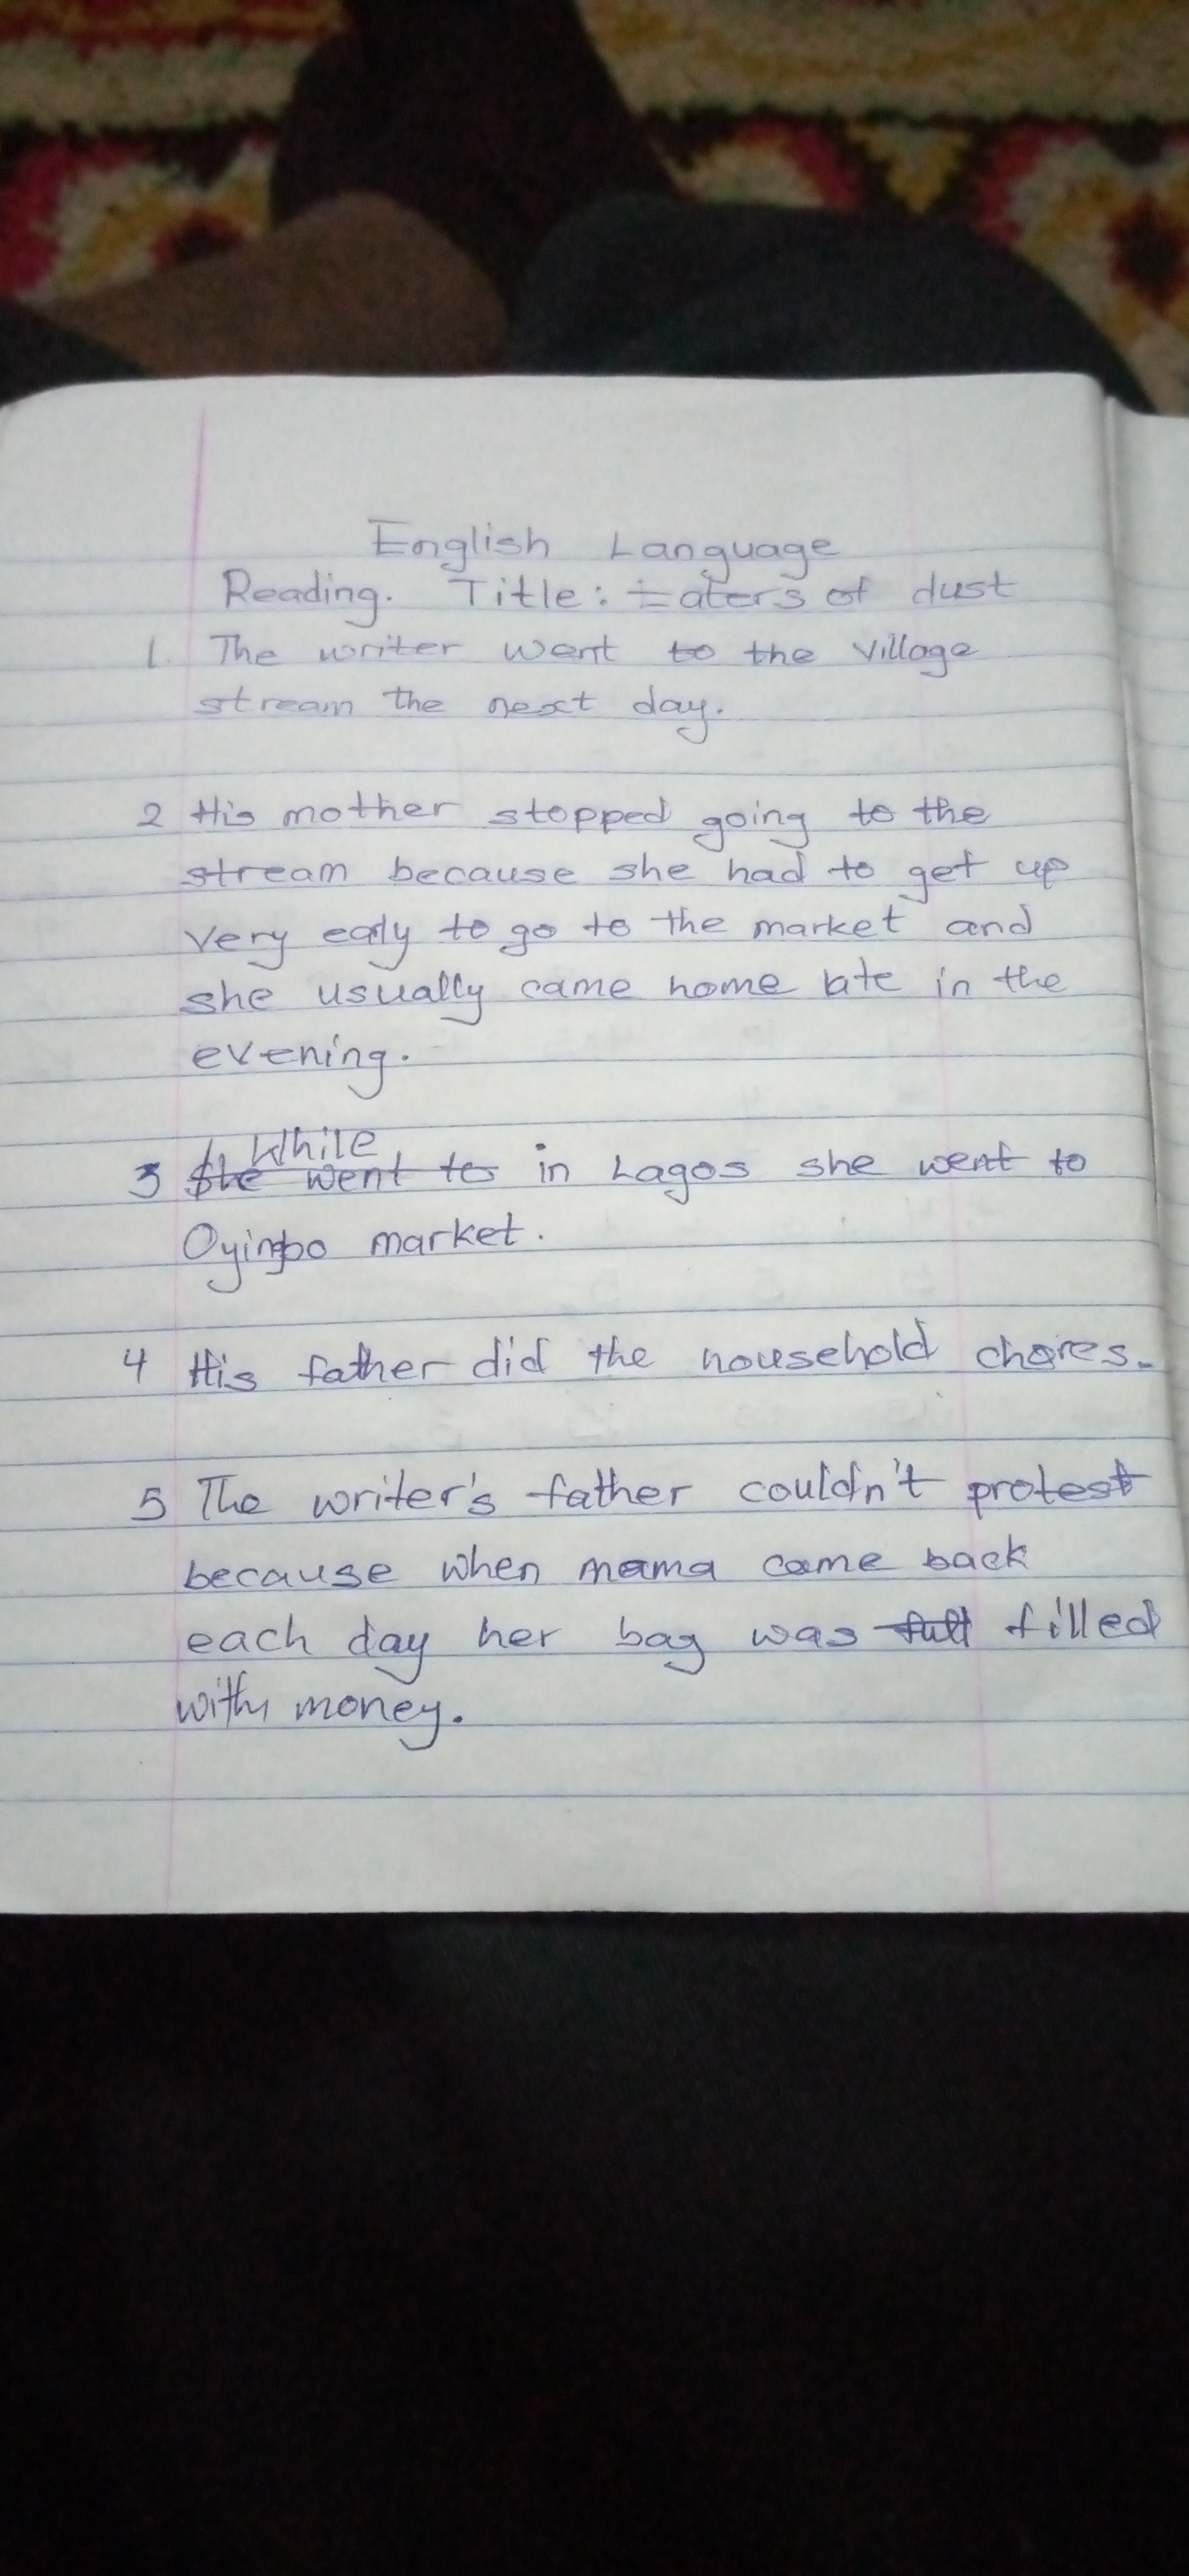 English Language
Reading. Title: Eaters of dust
1. The writer went to the village
stream the next day.
2 His mother stopped going to the
stream because she had to get up
very early to go to the market and
she usually came home late in the
evening.
While
3 She went to in Lagos she went to
Oyingbo market.
4 His father did the household chores.
5 The writer's father couldn't protest
because when mama came back
each day her bag was full filled
with money.